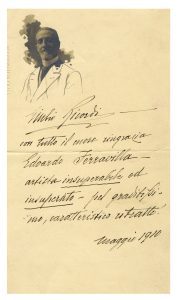 Giulio Ricordi -
con tutto il cuore ringrazia
Edoardo Ferravilla -
artista insuperabile ed
insuperato - pel graditissi-
mo, caratteristico ritratto.
Maggio 1910